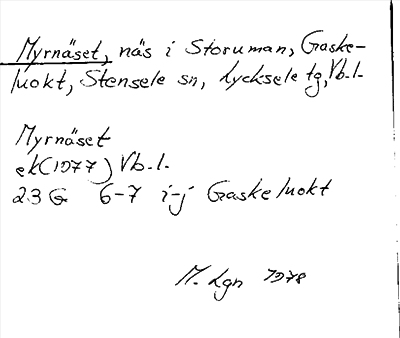 Myrnäset, näs i Storuman, Gaske-
luokt, Stensele sn, Lycksele tg, Vb.l.
Myrnäset
ek(1977) Vb.l.
23 G 6-7 i-j Gaskeluokt
M. Lgn 1978